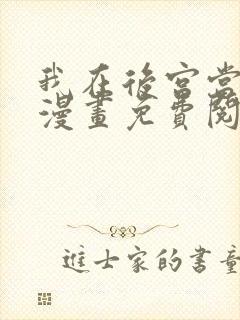 我在後宮當
漫畫免費閱
進士家的書童